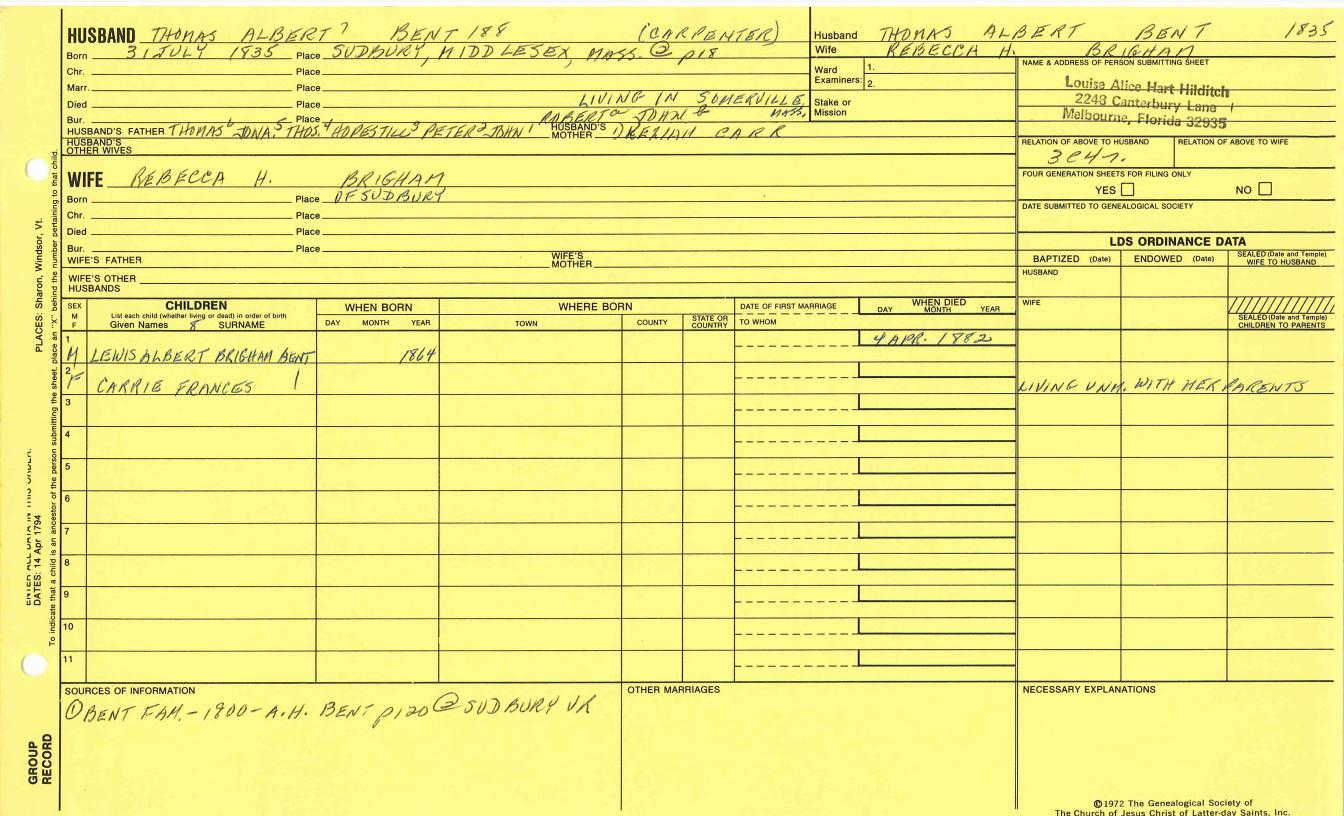 HUSBAND THOMAS ALBERT 7 BENT 188 (CARPENTER)
Born 31 JULY 1835 Place SUDBURY, MIDDLESEX, MASS. ② p18
Chr. Place
Marr. Place
Died Place LIVING IN SOMERVILLE, MASS.
Bur. Place ROBERT a JOHN b
HUSBAND'S FATHER THOMAS 6 JONA. 5 THOS. 4 HOPESTILL 3 PETER 2 JOHN 1 HUSBAND'S MOTHER 1) KEZIAH CARR
HUSBAND'S OTHER WIVES
Husband THOMAS ALBERT BENT 1835
Wife REBECCA H. BRIGHAM
Ward Examiners: 1.
2.
Stake or Mission
NAME & ADDRESS OF PERSON SUBMITTING SHEET
Louise Alice Hart Hilditch
2243 Canterbury Lane
Melbourne, Florida 32935
RELATION OF ABOVE TO HUSBAND RELATION OF ABOVE TO WIFE
3C4r.
FOUR GENERATION SHEETS FOR FILING ONLY
YES NO
DATE SUBMITTED TO GENEALOGICAL SOCIETY
WIFE REBECCA H. BRIGHAM
Born Place OF SUDBURY
Chr. Place
Died Place
Bur. Place
WIFE'S FATHER WIFE'S MOTHER
WIFE'S OTHER HUSBANDS
LDS ORDINANCE DATA
BAPTIZED (Date) ENDOWED (Date) SEALED (Date and Temple) WIFE TO HUSBAND
HUSBAND
WIFE
SEALED (Date and Temple) CHILDREN TO PARENTS
SEX M F
CHILDREN
List each child (whether living or dead) in order of birth
Given Names 8 SURNAME
WHEN BORN
DAY MONTH YEAR
WHERE BORN
TOWN COUNTY STATE OR COUNTRY
DATE OF FIRST MARRIAGE
TO WHOM
WHEN DIED
DAY MONTH YEAR
1 M LEWIS ALBERT BRIGHAM BENT 1864 4 APR. 1882
2 F CARRIE FRANCES LIVING UNM. WITH HER PARENTS
3
4
5
6
7
8
9
10
11
SOURCES OF INFORMATION
① BENT FAM. - 1900 - A.H. BENT p120 ② SUDBURY VR
OTHER MARRIAGES
NECESSARY EXPLANATIONS
©1972 The Genealogical Society of
The Church of Jesus Christ of Latter-day Saints, Inc.
PLACES: Sharon, Windsor, Vt.
ENTER ALL DATA IN THIS ORDER:
DATES: 14 Apr 1794
To indicate that a child is an ancestor of the person submitting the sheet, place an "X" behind the number pertaining to that child.
GROUP RECORD